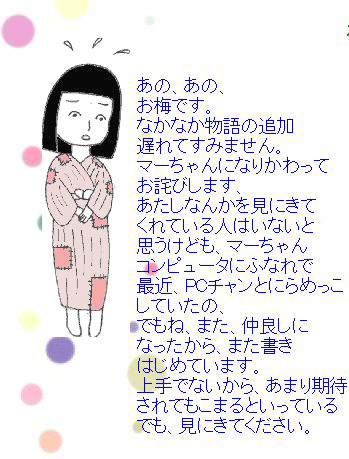 あの、あの、
お梅です。
なかなか物語の追加
遅れてすみません。
マーちゃんになりかわって
お詫びします、
あたしなんかを見にきて
くれている人はいないと
思うけども、マーちゃん
コンピュータにふなれで
最近、PCチャンとにらめっこ
していたの、
でもね、また、仲良しに
なったから、また書き
はじめています。
上手でないから、あまり期待
されてもこまるといっている
でも、見にきてください。